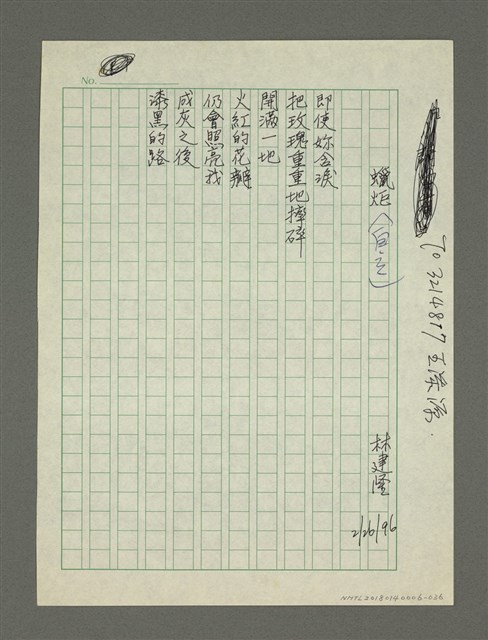 No.
To 3214817 王
蠟炬（自立）
林建隆
2/26/96
即使妳含淚
把玫瑰重重地摔碎
開滿一地
火紅的花瓣
仍會照亮我
成灰之後
漆黑的路
NMTL20180140006-036